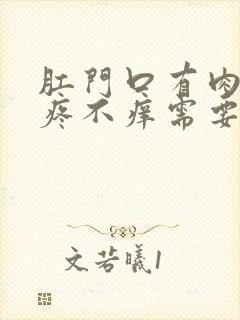 肛門口有肉
疼不癢需要
文若曦1